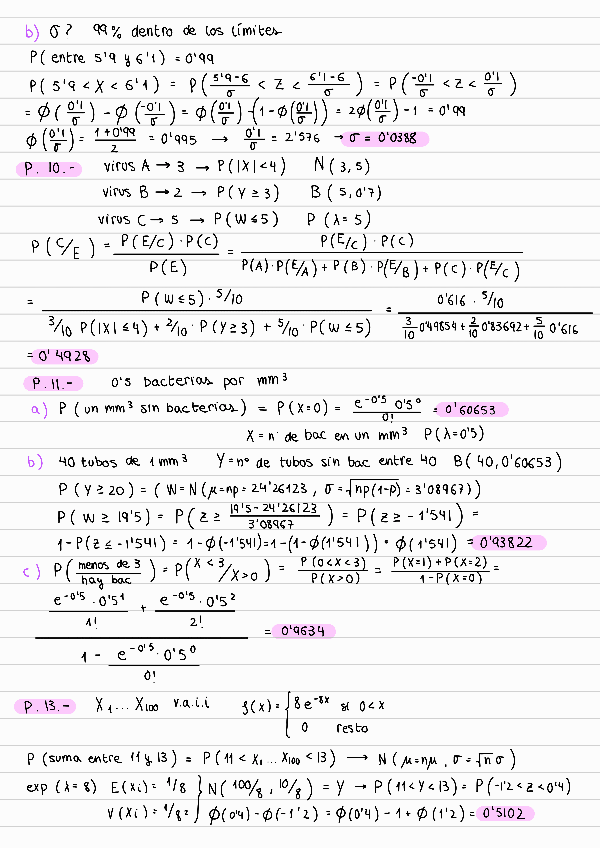 b) σ? 99% dentro de los límites
P( entre 5'9 y 6'1 ) = 0'99
P( 5'9 < X < 6'1 ) = P( (5'9-6)/σ < Z < (6'1-6)/σ ) = P( (-0'1)/σ < Z < 0'1/σ )
= Φ( 0'1/σ ) - Φ( (-0'1)/σ ) = Φ( 0'1/σ ) - (1-Φ( 0'1/σ )) = 2Φ( 0'1/σ ) - 1 = 0'99
Φ( 0'1/σ ) = (1+0'99)/2 = 0'995 → 0'1/σ = 2'576 → σ = 0'0388
P. 10.- virus A → 3 → P(|X|<4) N(3,5)
virus B → 2 → P(Y ≥ 3) B(5,0'7)
virus C → 5 → P(W≤5) P(λ=5)
P(C/E) = P(E/C)·P(C) / P(E) = P(E/C)·P(C) / P(A)·P(E/A) + P(B)·P(E/B) + P(C)·P(E/C)
= P(W≤5)·5/10 / 3/10 P(|X|≤4) + 2/10·P(Y≥3) + 5/10·P(W≤5) = 0'616 · 5/10 / 3/10 0'49854 + 2/10 0'83692 + 5/10 0'616
= 0'4928
P. 11.- 0'5 bacterias por mm³
a) P(un mm³ sin bacterias) = P(X=0) = e^-0'5 0'5^0 / 0! = 0'60653
X = nº de bac en un mm³ P(λ=0'5)
b) 40 tubos de 1 mm³ Y=nº de tubos sin bac entre 40 B(40,0'60653)
P(Y≥20) = (W=N(μ=np=24'26123, σ=√np(1-p) = 3'08967))
P(W≥19'5) = P( Z ≥ (19'5-24'26123)/3'08967 ) = P(Z≥-1'541) =
1-P(Z≤-1'541) = 1-Φ(-1'541)=1-(1-Φ(1'541)) = Φ(1'541) = 0'93822
c) P( menos de 3 / hay bac ) = P( X<3 / X>0 ) = P(0<X<3) / P(X>0) = P(X=1)+P(X=2) / 1-P(X=0) =
e^-0'5·0'5^1 / 1! + e^-0'5·0'5^2 / 2!
= 0'9634
1 - e^-0'5·0'5^0 / 0!
P. 13.- X₁...X₁₀₀ v.a.i.i f(x) = { 8e^-8x si 0<x
0 resto
P(suma entre 11 y 13) = P(11 < X₁...X₁₀₀ < 13) → N(μ=nμ, σ=√n σ)
exp(λ=8) E(Xi)=1/8 } N(100/8, 10/8) = Y → P(11<Y<13) = P(-1'2<Z<0'4)
V(Xi)=1/8² } Φ(0'4)-Φ(-1'2)=Φ(0'4)-1+Φ(1'2)= 0'5102